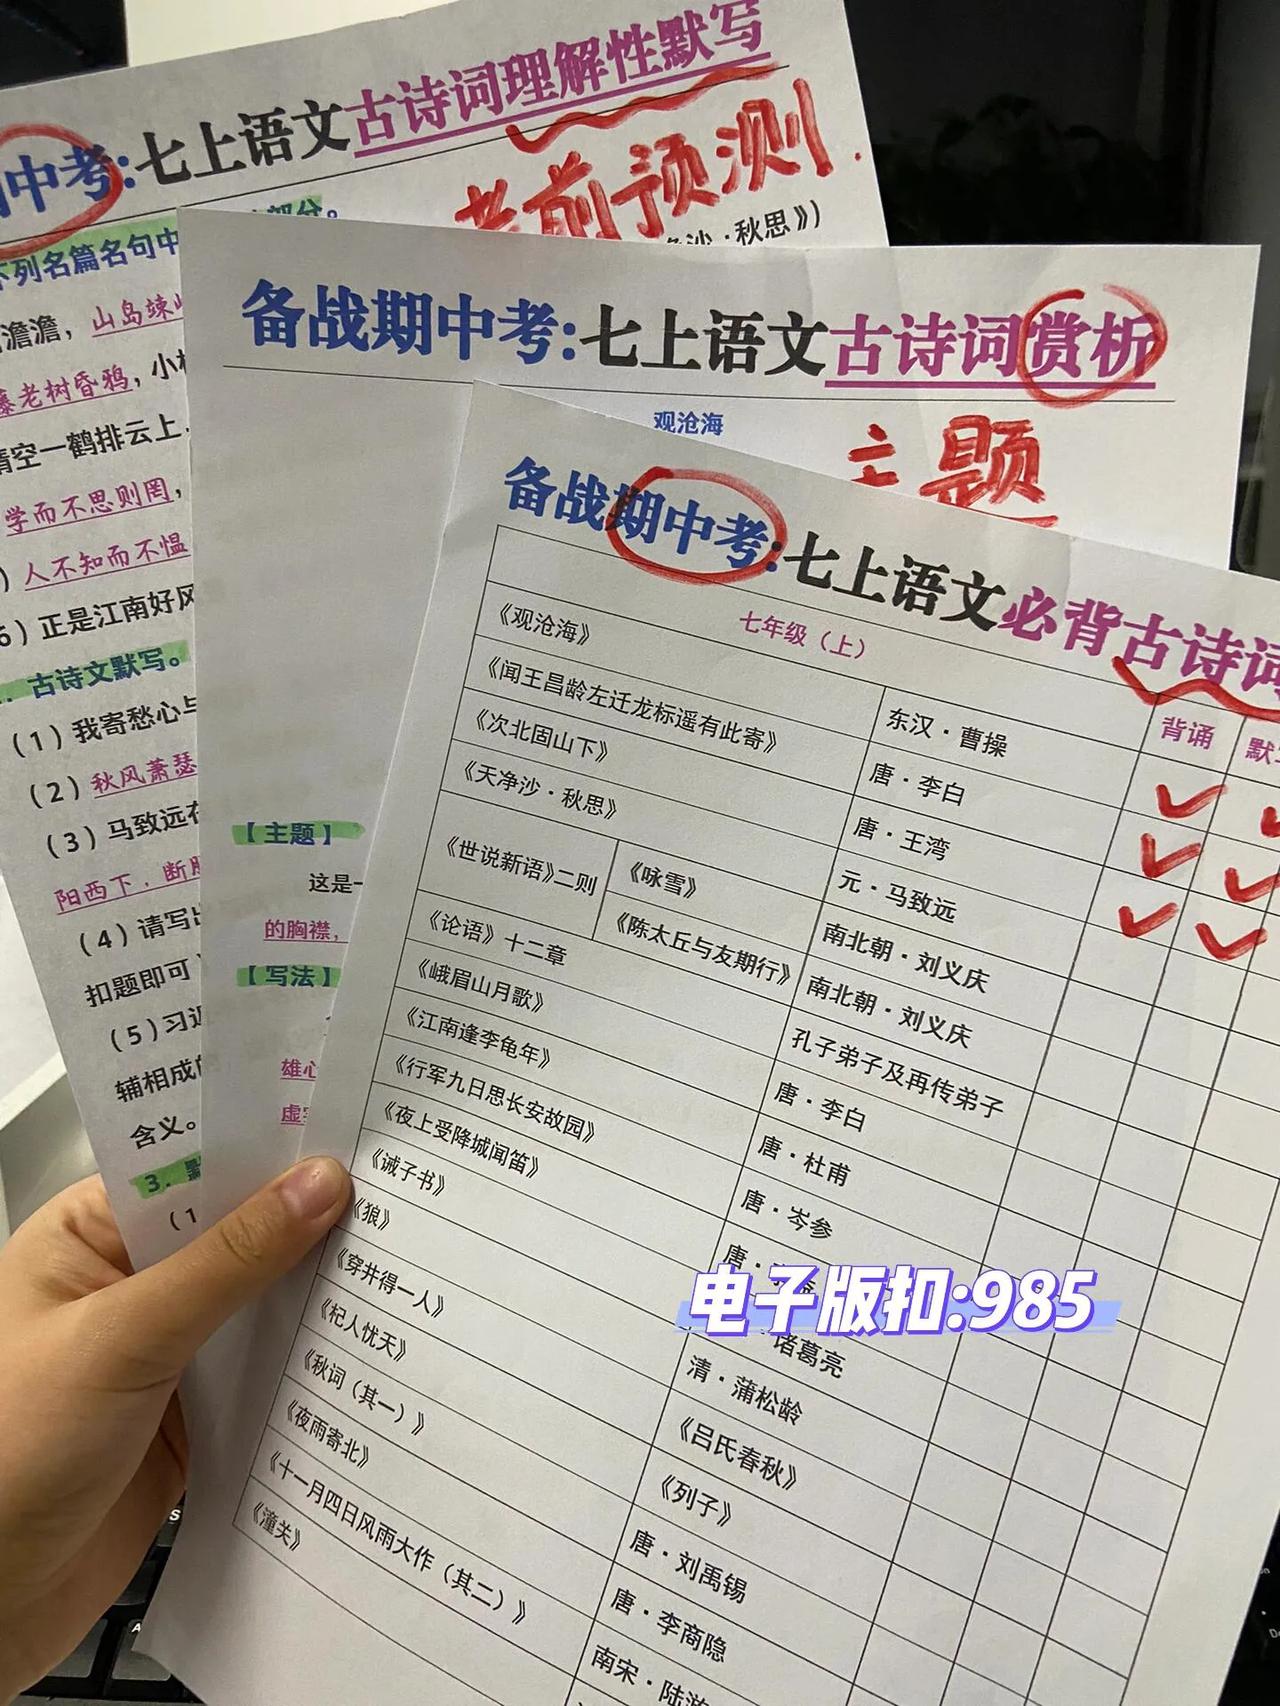 中考:七上语文古诗词理解性默写
考前预测
部分。
下列名篇名句中
沙·秋思》)
澹澹，山岛竦
老树昏鸦，小
晴空一鹤排云上
学而不思则罔，
人不知而不愠
6）正是江南好风
古诗文默写。
（1）我寄愁心与
（2）秋风萧瑟
（3）马致远在
阳西下，断肠
（4）请写出
扣题即可
（5）习近
辅相成的
含义。
3.
（1
备战期中考:七上语文古诗词赏析
观沧海
主题
【主题】
这是一
的胸襟，
【写法】
雄心
虚实
备战期中考:七上语文必背古诗词
七年级（上）
背诵 默写
《观沧海》 东汉·曹操
《闻王昌龄左迁龙标遥有此寄》 唐·李白
《次北固山下》 唐·王湾
《天净沙·秋思》 元·马致远
《世说新语》二则 《咏雪》 南北朝·刘义庆
《陈太丘与友期行》 南北朝·刘义庆
《论语》十二章 孔子弟子及再传弟子
《峨眉山月歌》 唐·李白
《江南逢李龟年》 唐·杜甫
《行军九日思长安故园》 唐·岑参
《夜上受降城闻笛》 唐·
《诫子书》 诸葛亮
《狼》 清·蒲松龄
《穿井得一人》 《吕氏春秋》
《杞人忧天》 《列子》
《秋词（其一）》 唐·刘禹锡
《夜雨寄北》 唐·李商隐
《十一月四日风雨大作（其二）》 南宋·陆游
《潼关》
电子版扣:985